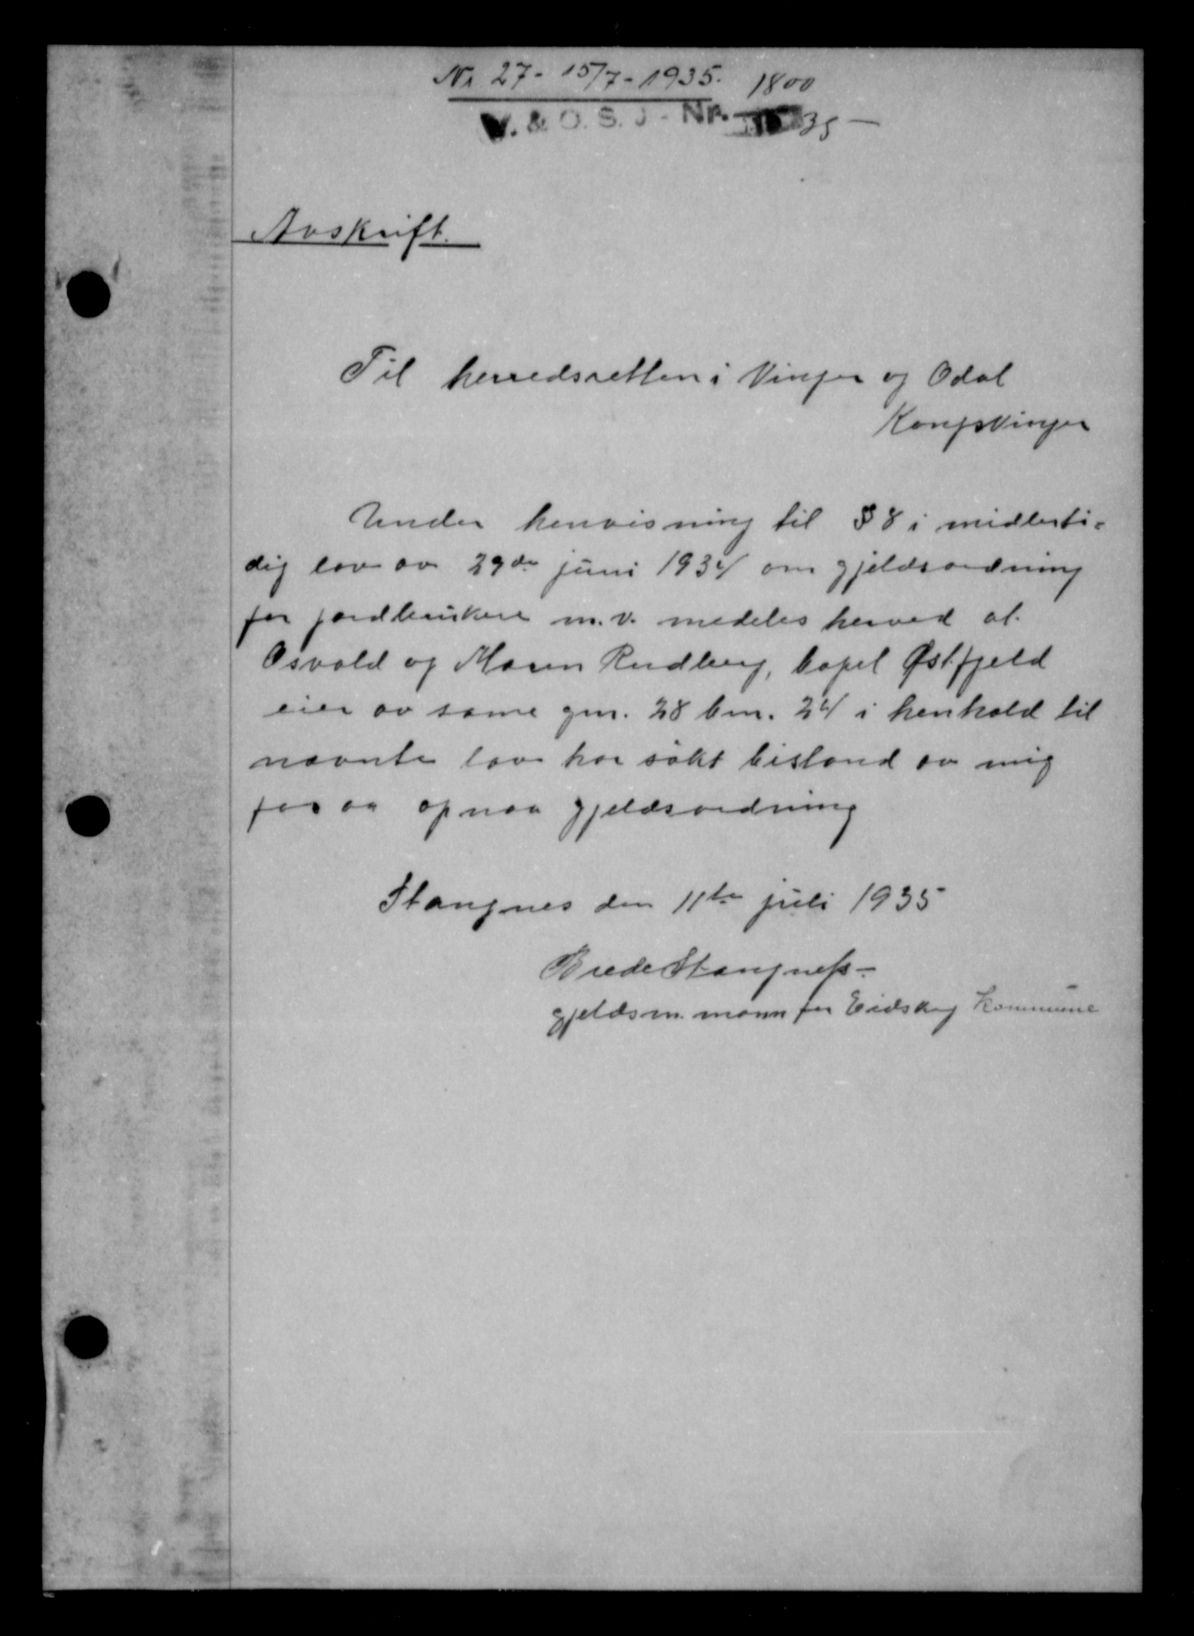 Nr 27 - 15/7 - 1935. 1800
V. & O. S. J - Nr. 35 -
Avskrift.
Til herredsretten i Vinger og Odal
Kongsvinger
Under henvisning til § 8 i midlerti-
dig lov av 29de juni 1934 om gjeldsordning
for jordbrukere m.v. medeles herved at
Osvald og Maren Rudberg, bopel Østfjeld
eier av same gm. 28 bm. 24 i henhold til
nævnte lov har søkt bistand av mig
for aa opnaa gjeldsordning
Stangnes den 11te juli 1935
Brede Stangness
gjeldsm. mann for Eidskog Kommune